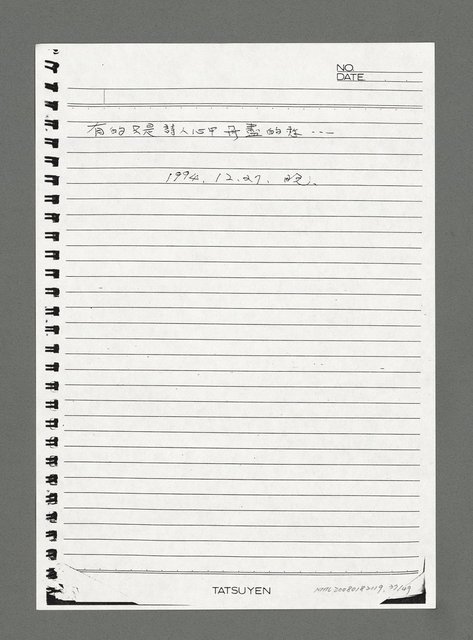 NO.
DATE
有的只是詩人心中無盡的愁…
1994.12.27. 晚.
TATSUYEN
NMTL20080182119, 37/49